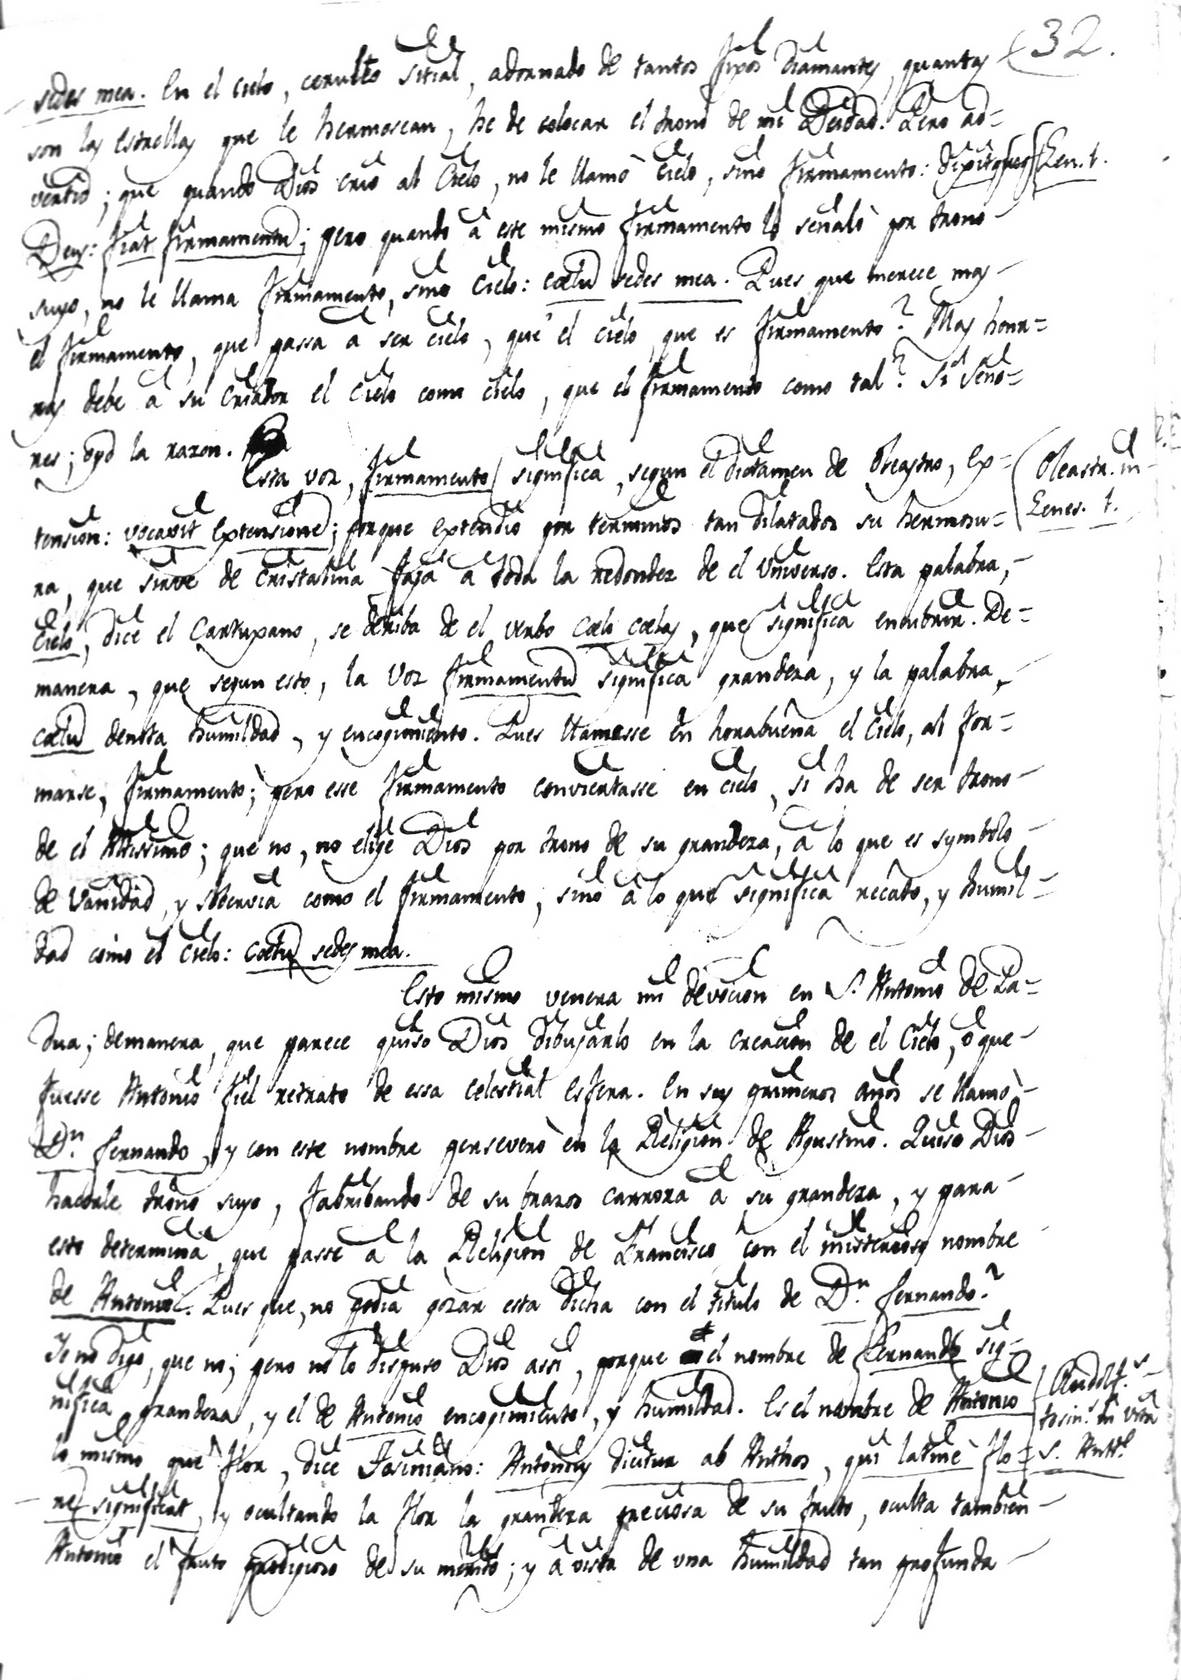 32.
sedes mea. En el cielo, ceruleo sitial, adornado de tantos fixos Diamantes, quantas
son las estrellas que le hermosean, he de colocar el trono de mi Deidad. Pero ad=
vertid; que quando Dios crió al Cielo, no le llamò Cielo, sino firmamento: dixitque
Gen. 1.
Deus: fiat firmamentũ; pero quando â este mismo firmamento lo señalò por trono
suyo, no le llama firmamento, sino Cielo: cœlũ sedes mea. Pues que merece mas
el firmamento, que passa â ser cielo, què el cielo, que es firmamento? Mas honr=
ras debe â su Criador el Cielo como cielo, que el firmamento como tal? Si Seño=
res; oyd la razon.
Esta voz, firmamento significa, segun el Dictamen de Oleastro, ex=
Oleastr. in
Genes. 1.
tension: vocavit extensionẽ; porque extendió por terminos tan dilatados su hermosu=
ra, que sirve de cristalina faja â toda la redondez de el Universo. Esta palabra,
Cielo, dice el Cartuxano, se deriba de el verbo Cœlo cœlas, que significa encubrir. De=
manera, que segun esto, la Voz firmamentũ significa grandeza, y la palabra,
cœlũ denota humildad, y encogimiento. Pues llamesse en horabuena el Cielo, al for=
marse, firmamento; pero esse firmamento conviertasse en cielo, si ha de ser trono
de el Altissimo; que no, no elije Dios por trono de su grandeza, â lo que es symbolo
de Vanidad, y sobervia como el firmamento, sino â lo que significa recato, y humil=
dad como el Cielo: cœlũ sedes mea.
Esto mismo venera mi devocion en S. Antonio de Pa=
dua; demanera, que parece quiso Dios dibujarlo en la creacion de el Cielo, ò que
fuesse Antonio fiel retrato de essa celestial esfera. En sus primeros años se llamò
Dn. Fernando, y con este nombre perseverò en la Religion de Agustino. Quiso Dios
hacerle trono suyo, fabribando de su brazos carroza â su grandeza, y para
esto determina, que passe â la Religion de Francisco con el misterioso nombre
de Antonio. Pues que, no podia gozar esta dicha con el titulo de Dn. Fernando?
Yo no digo, que no; pero no lo dispuso Dios assi, porque el nombre de Fernando sig=
nifica grandeza, y el de Antonio encogimiento, y humildad. Es el nombre de Antonio
S. Antto.
lo mismo que flor, dice Tosiniano: Antonius dicitur ab Anthos, qui latinè flo=
rem significat, y ocultando la flor la grandeza preciosa de su fruto, oculta tambien
Antonio el fruto prodigioso de su merito; y â vista de una humildad tan profunda